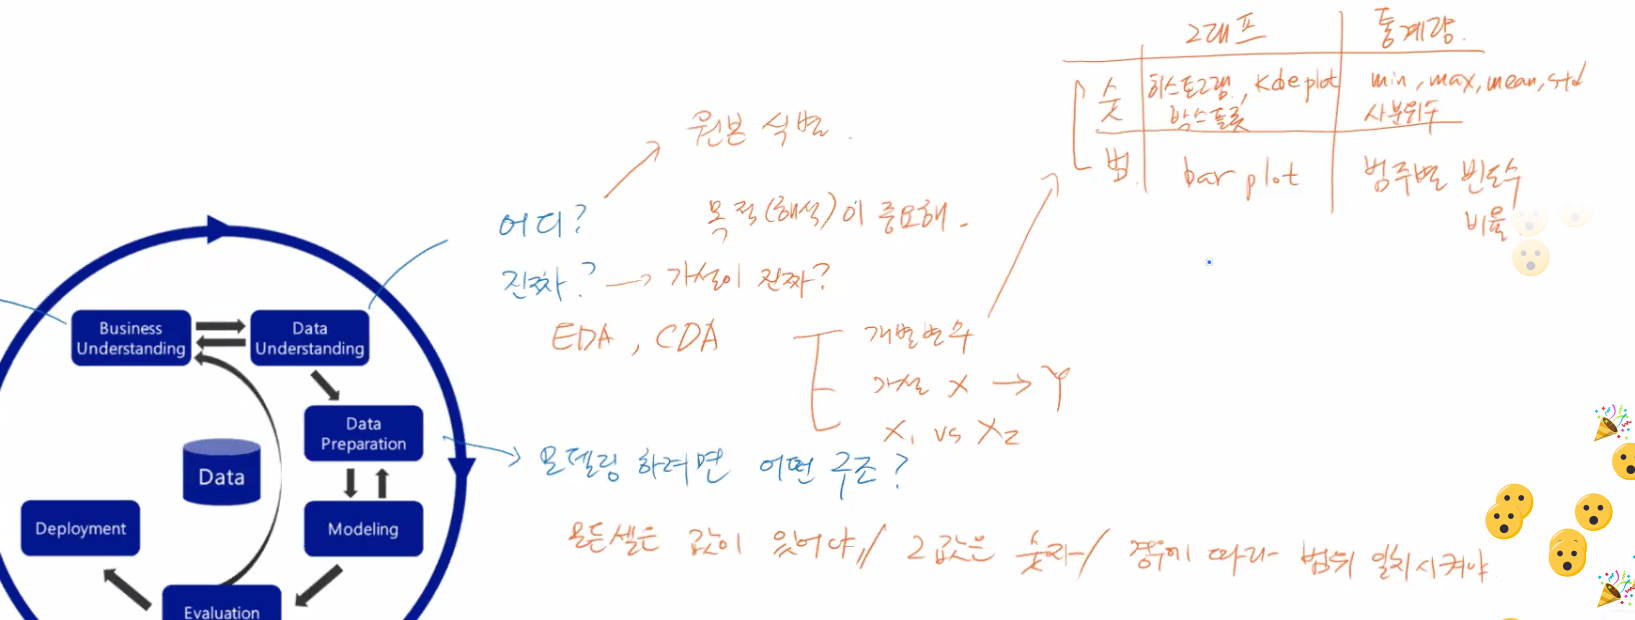 그래프 통계량.
숫 히스토그램, kde plot min, max, mean, std
박스플롯 사분위수
범 bar plot 범주별 빈도수
비율
원본 식별.
어디? 목적(해석)이 중요해.
진짜? → 가설이 진짜?
EDA, CDA
개별변수
가설 X → Y
X1 vs X2
Business
Understanding
Data
Understanding
Data
Preparation
모델링 하려면 어떤 구조?
Data
Modeling
Deployment
모든셀은 값이 있어야,// 그값은 숫자/ 경우에 따라 범위 일치시켜야
Evaluation